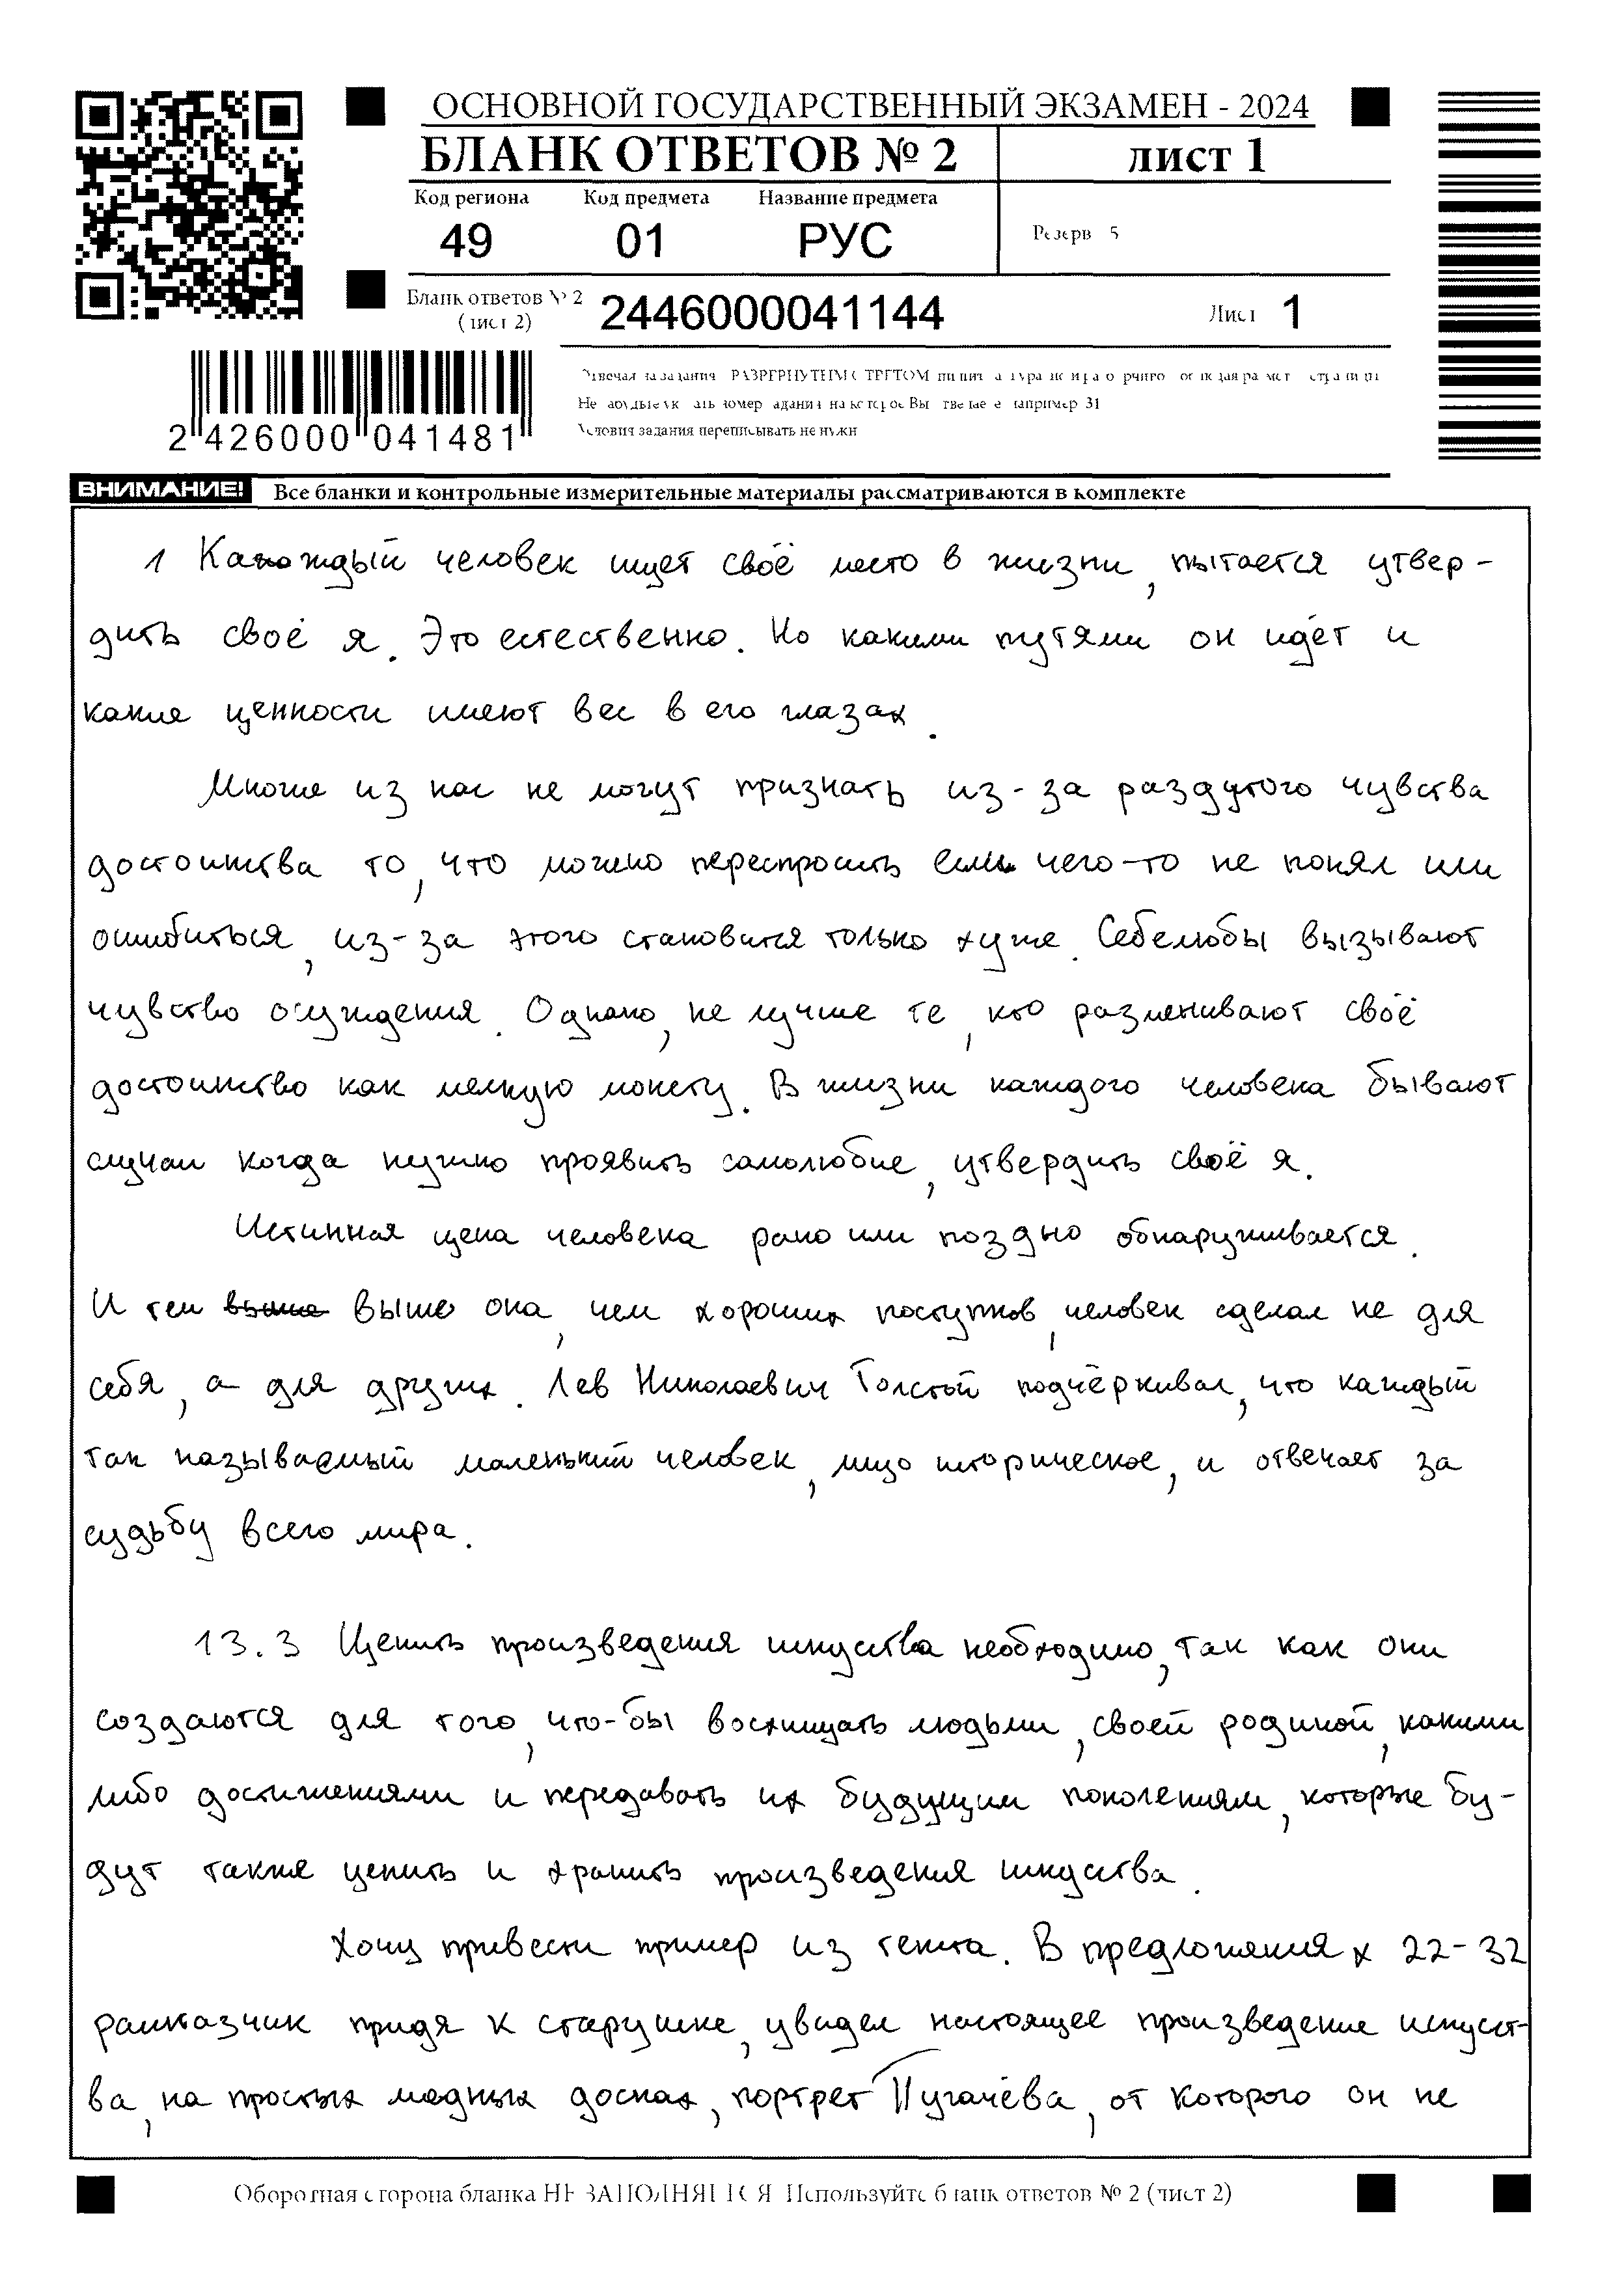 ОСНОВНОЙ ГОСУДАРСТВЕННЫЙ ЭКЗАМЕН - 2024
БЛАНК ОТВЕТОВ № 2
лист 1
Код региона Код предмета Название предмета
49 01 РУС
Резерв 5
Бланк ответов № 2
(лист 2)
2446000041144
Лист 1
2 426000 041481
Условия задания переписывать не нужн
ВНИМАНИЕ! Все бланки и контрольные измерительные материалы рассматриваются в комплекте
1 Каждый человек ищет своё место в жизни, пытается утвер-
дить своё я. Это естественно. Но какими путями он идёт и
какие ценности имеют вес в его глазах.
Многие из нас не могут признать из-за раздутого чувства
достоинства то, что можно переспросить если чего-то не понял или
ошибиться, из-за этого становится только хуже. Себелюбы вызывают
чувство осуждения. Однако, не лучше те, кто разменивают своё
достоинство как мелкую монету. В жизни каждого человека бывают
случаи когда нужно проявить самолюбие, утвердить своё я.
Истинная цена человека рано или поздно обнаруживается.
И тем выше она, чем хороших поступков, человек сделал не для
себя, а для других. Лев Николаевич Толстой подчёркивал, что каждый
так называемый маленький человек, лицо историческое, и отвечает за
судьбу всего мира.
13.3 Ценить произведения искуства необходимо, так как они
создаются для того, что-бы восхищать людьми, своей родиной, какими
либо достижениями и передавать их будущим поколениям, которые бу-
дут также ценить и хранить произведения искуства.
Хочу привести пример из текста. В предложениях 22-32
рассказчик придя к старушке, увидел настоящее произведение искуст-
ва, на простых медных досках, портрет Пугачёва, от которого он не
Оборотная сторона бланка НЕ ЗАПОЛНЯЕТСЯ Используйте бланк ответов № 2 (лист 2)